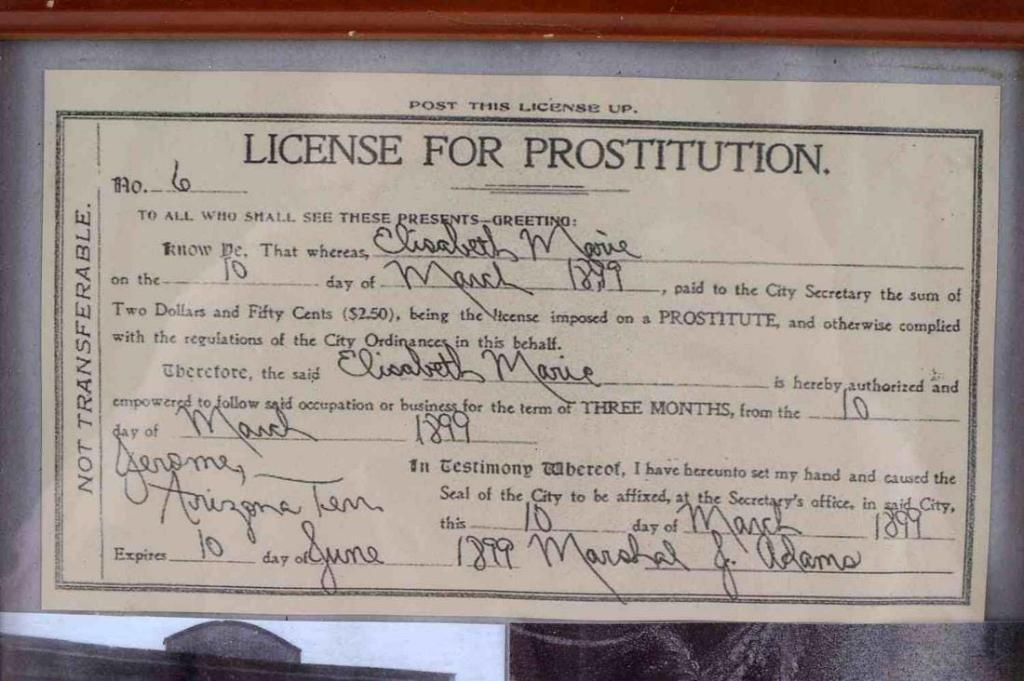 POST THIS LICENSE UP.
LICENSE FOR PROSTITUTION.
No. 6
TO ALL WHO SHALL SEE THESE PRESENTS—GREETING:
Know Ye, That whereas, Elisabeth Marie
on the 10 day of March 1899, paid to the City Secretary the sum of
Two Dollars and Fifty Cents ($2.50), being the license imposed on a PROSTITUTE, and otherwise complied
with the regulations of the City Ordinances in this behalf.
Therefore, the said Elisabeth Marie is hereby authorized and
empowered to follow said occupation or business for the term of THREE MONTHS, from the 10
day of March 1899
Jerome,
Arizona Terr
In Testimony Whereof, I have hereunto set my hand and caused the
Seal of the City to be affixed, at the Secretary's office, in said City,
this 10 day of March 1899
Expires 10 day of June 1899 Marshal J. Adams
NOT TRANSFERABLE.